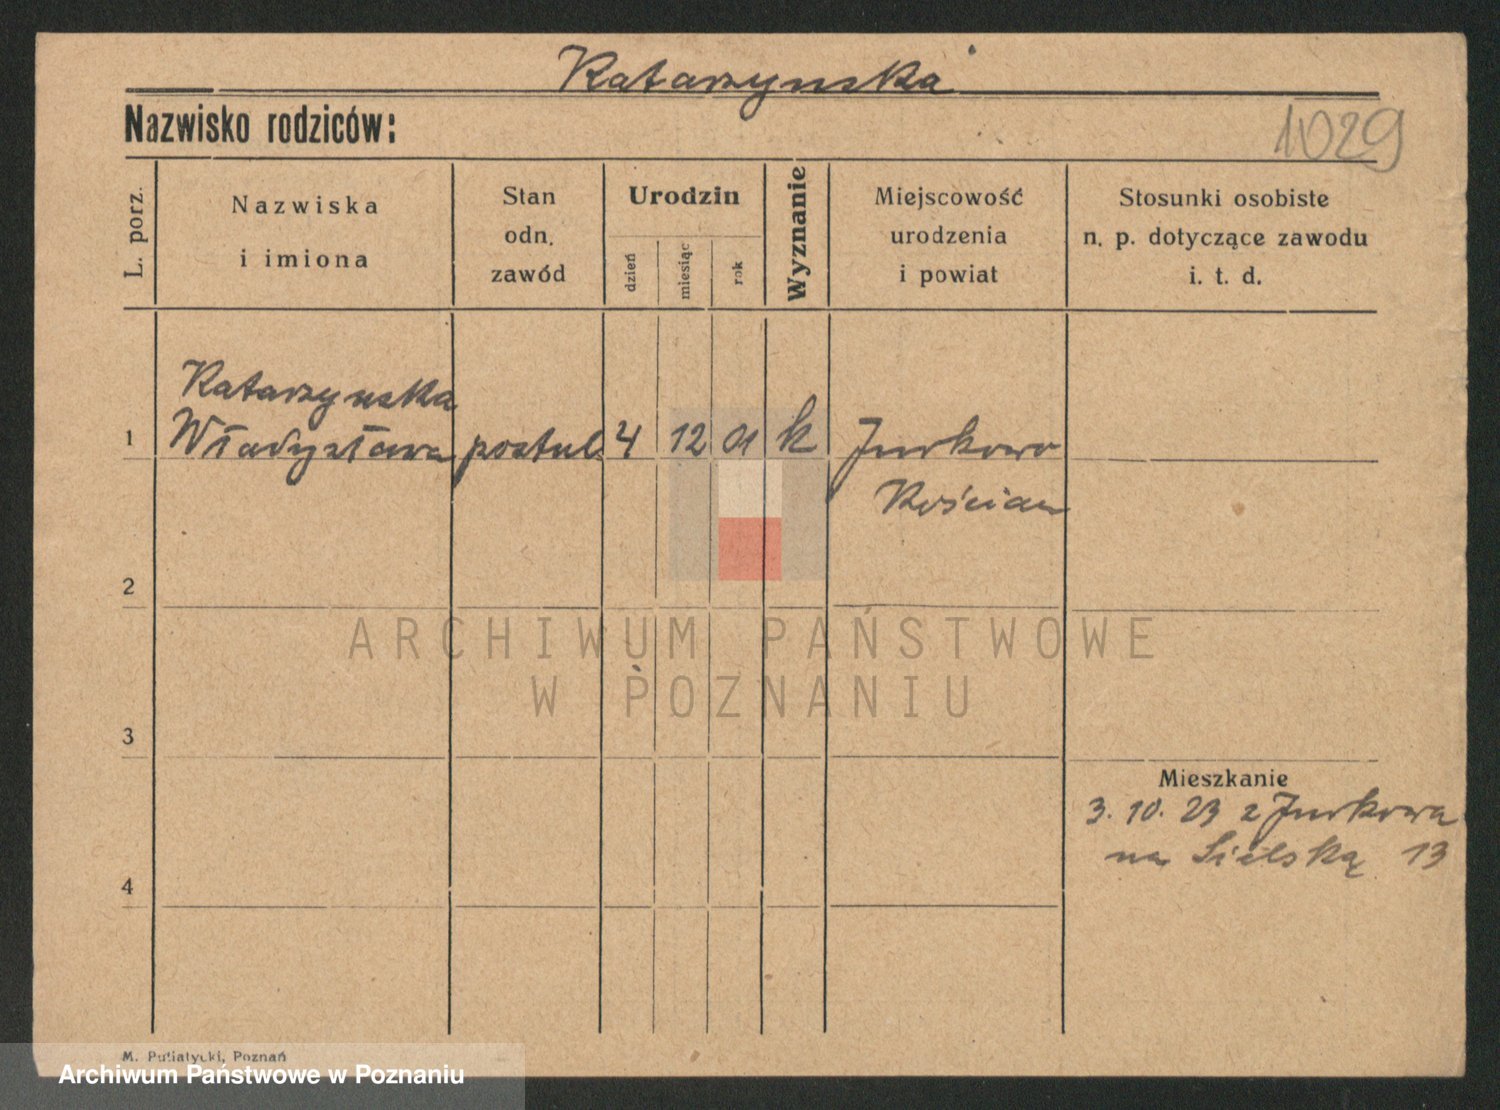 Katarzynska
Nazwisko rodziców:
1029
L. porz.
Nazwiska
i imiona
Stan
odn.
zawód
Urodzin
dzień
miesiąc
rok
Wyznanie
Miejscowość
urodzenia
i powiat
Stosunki osobiste
n. p. dotyczące zawodu
i. t. d.
Katarzynska
1 Władysława postul. 4 12 01 k Jurkowo
Kościan
2
ARCHIWUM PAŃSTWOWE
W POZNANIU
3
Mieszkanie
3. 10. 23 z Jurkowa
na Sielską 13
4
M. Putiatycki, Poznań
Archiwum Państwowe w Poznaniu